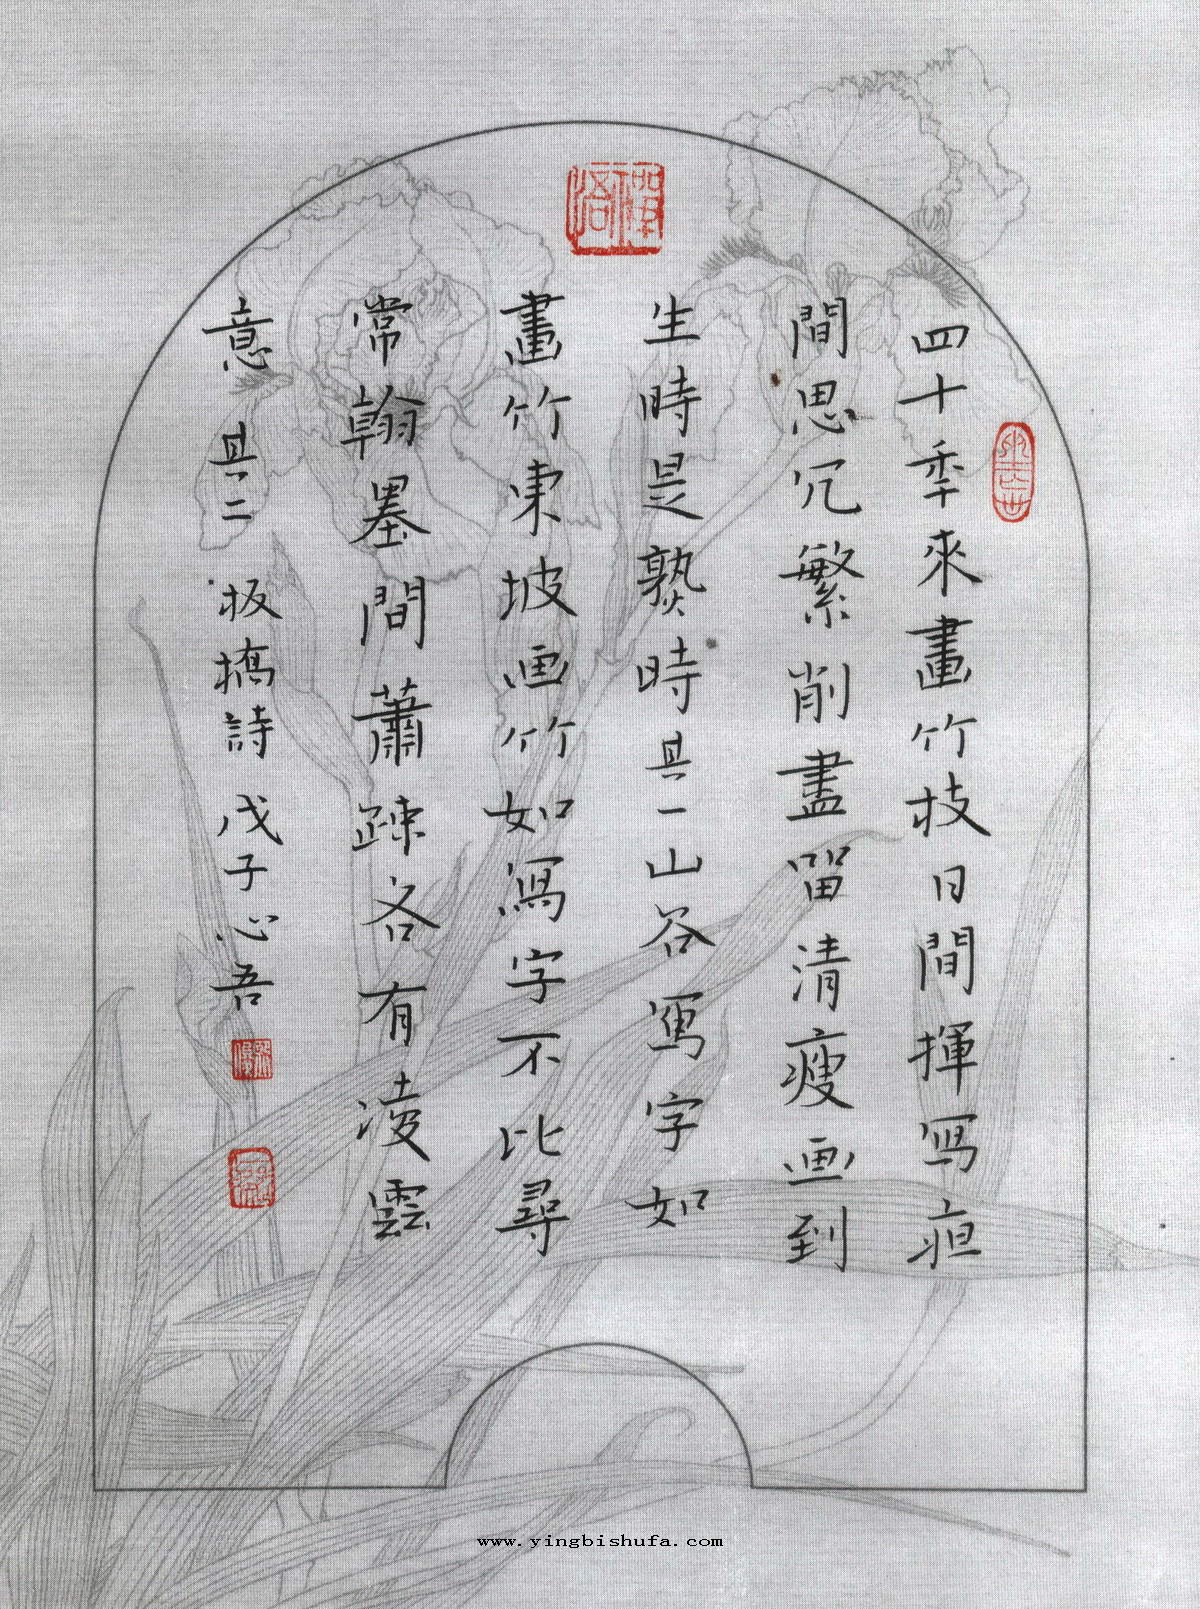 四十秊來畫竹枝日間揮写疸
間思冗繁削盡留清瘦画到
生時是熟時其一山谷寫字如
畫竹東坡画竹如寫字不比尋
常翰墨間蕭疎各有凌雲
意其二板橋詩戊子心吾
www.yingbishufa.com